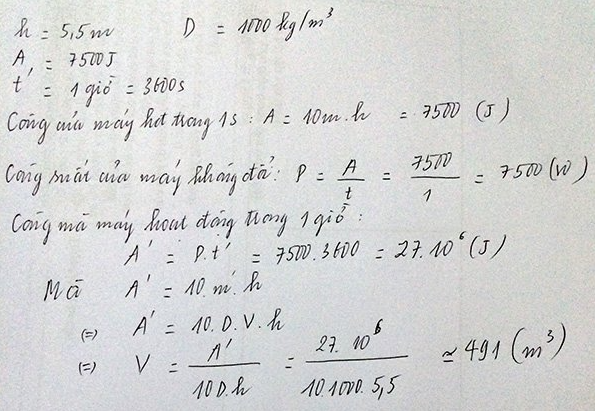 h = 5,5m D = 1000 kg/m³
A₁ = 7500J
t' = 1 giờ = 3600s
Công của máy hđ trong 1s : A = 10m.h = 7500 (J)
Công suất của máy không đổi: P = A/t = 7500/1 = 7500 (W)
Công mà máy hoạt động trong 1 giờ :
A' = P.t' = 7500.3600 = 27.10⁶ (J)
Mà A' = 10.m'.h
(=) A' = 10.D.V.h
(=) V = A'/10D.h = 27.10⁶/10.1000.5,5 ≃ 491 (m³)